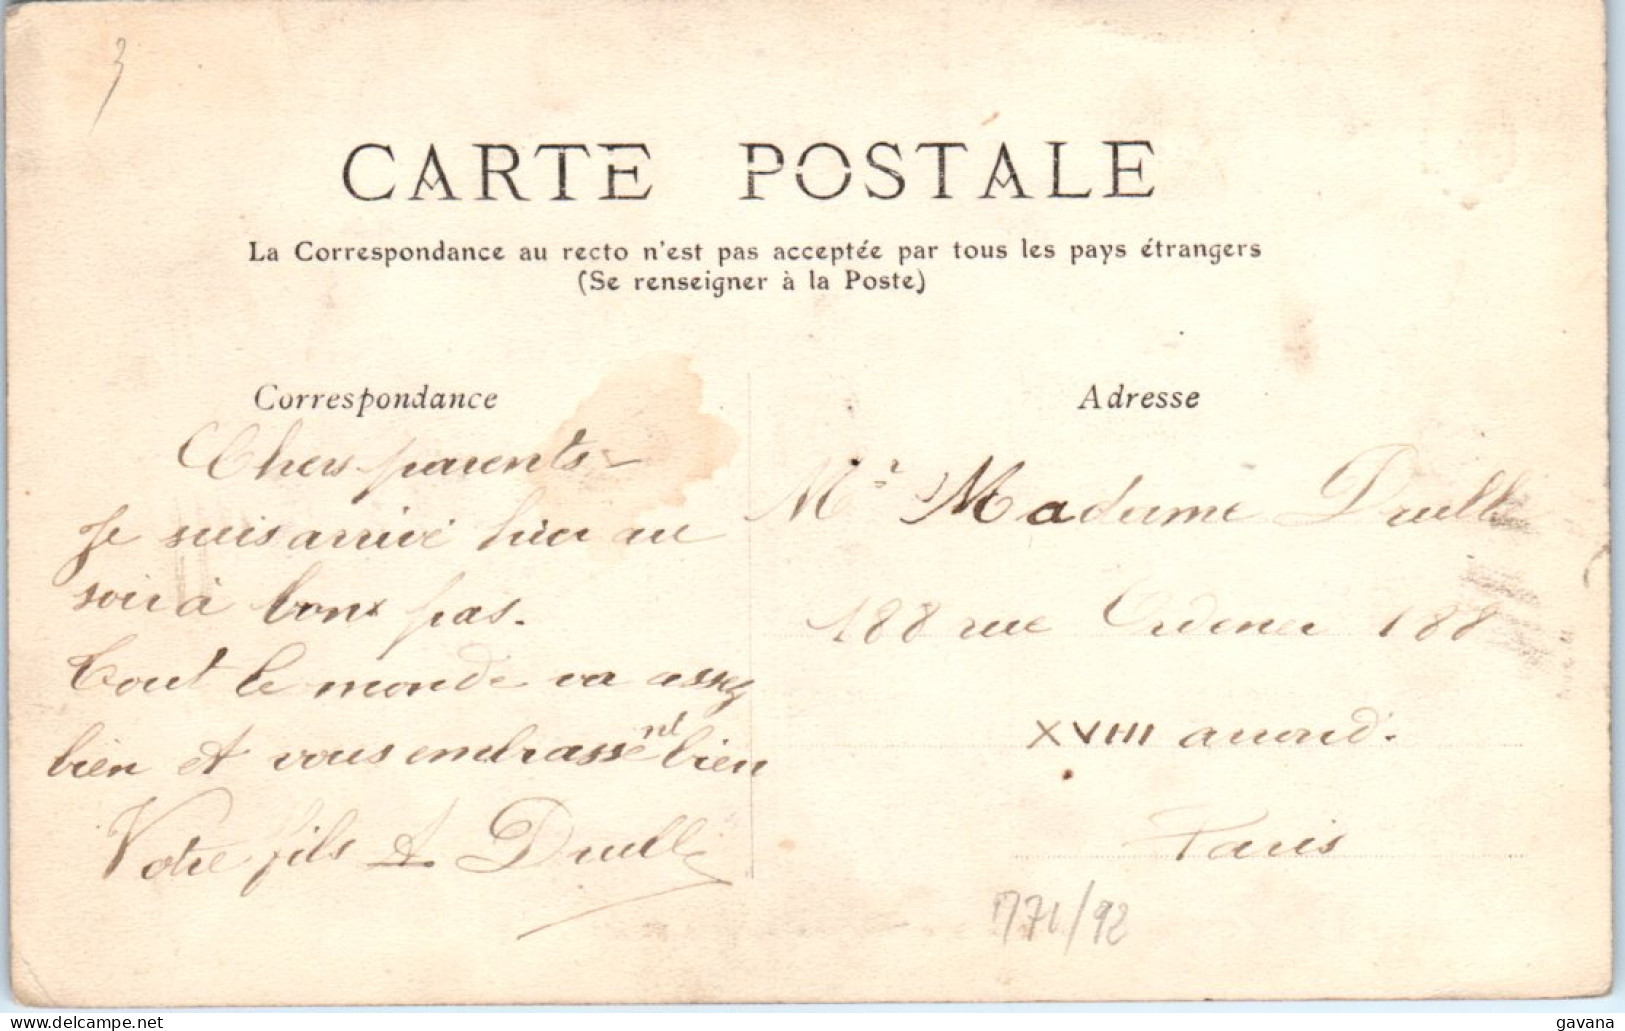 3
CARTE POSTALE
La Correspondance au recto n'est pas acceptée par tous les pays étrangers
(Se renseigner à la Poste)
Correspondance
Chers parents –
Je suis arrivé hier au
soir à bonx pas.
Tout le monde va assez
bien et vous embrassent bien
Votre fils A Druelle
Adresse
Mr Madame Druelle
188 rue Ordener 188
XVIII arrond.
Paris
/92
gavana